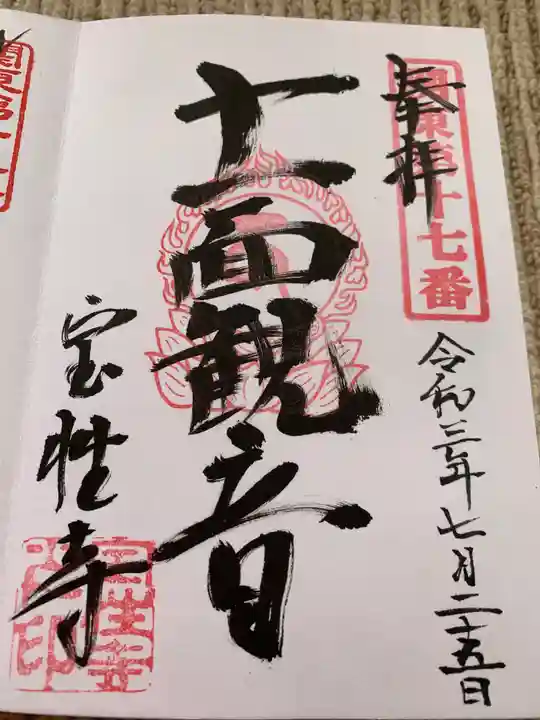 奉拝
関東第十七番
令和三年七月二十五日
十一面観音
宝性寺
関東第十